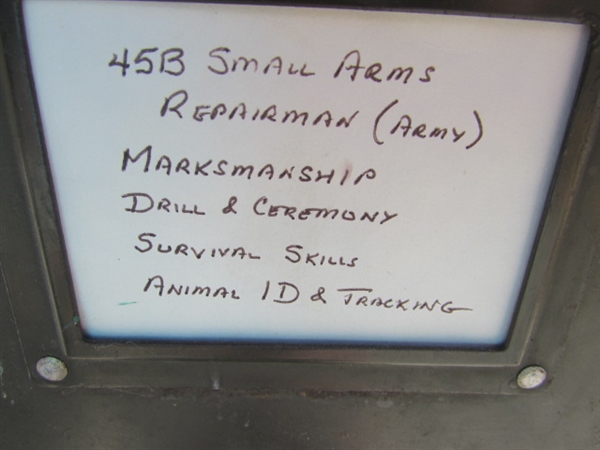 45B SMALL ARMS
REPAIRMAN (ARMY)
MARKSMANSHIP
DRILL & CEREMONY
SURVIVAL SKILLS
ANIMAL ID & TRACKING